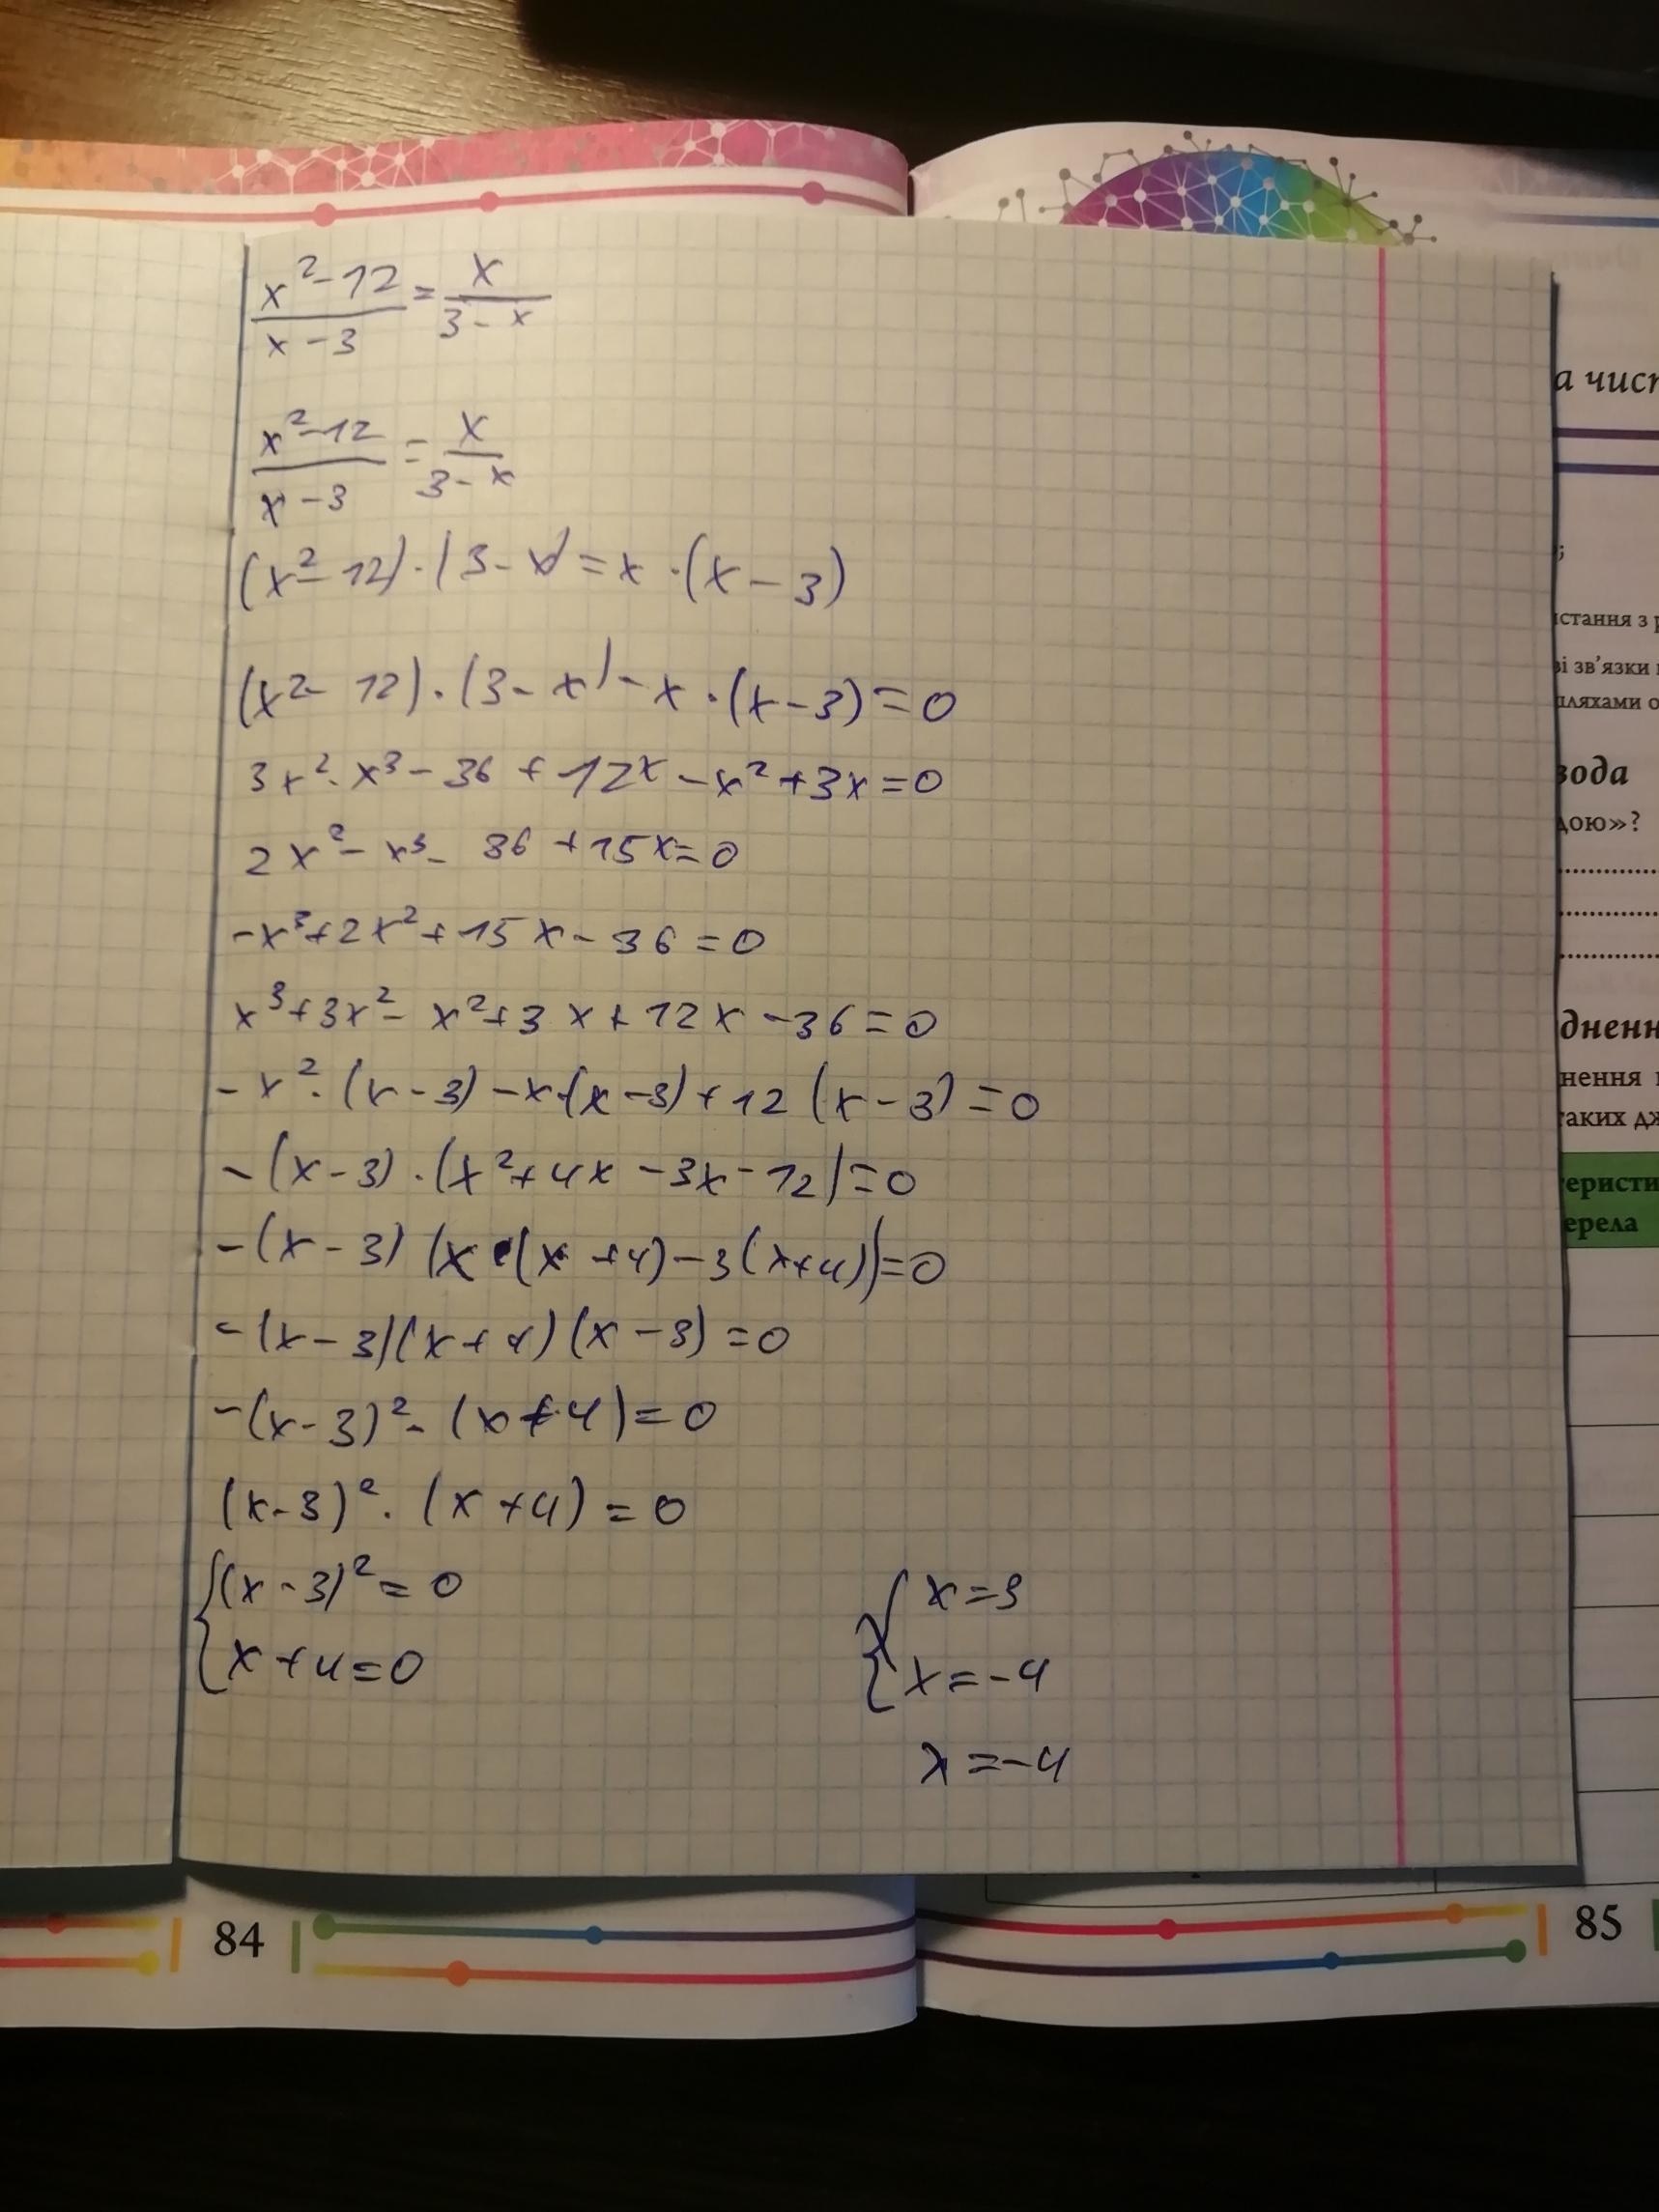 x²-12/x-3 = x/3-x
x²-12/x-3 = x/3-x
(x²-12)·(3-x)=x·(x-3)
(x²-12)·(3-x)-x·(x-3)=0
3x²-x³-36+12x-x²+3x=0
2x²-x³-36+15x=0
-x³+2x²+15x-36=0
x³+3x²-x²+3x+12x-36=0
-x²·(x-3)-x·(x-3)+12(x-3)=0
-(x-3)·(x²+4x-3x-12)=0
-(x-3)(x·(x+4)-3(x+4))=0
-(x-3)(x+4)(x-3)=0
-(x-3)²-(x+4)=0
(x-3)²·(x+4)=0
{(x-3)²=0
x+4=0
{x=3
x=-4
x=-4
а чист
;
істання з р
ві зв'язки
шляхами о
вода
дою»?
дненн
нення
таких дж
теристи
ерела
84
85